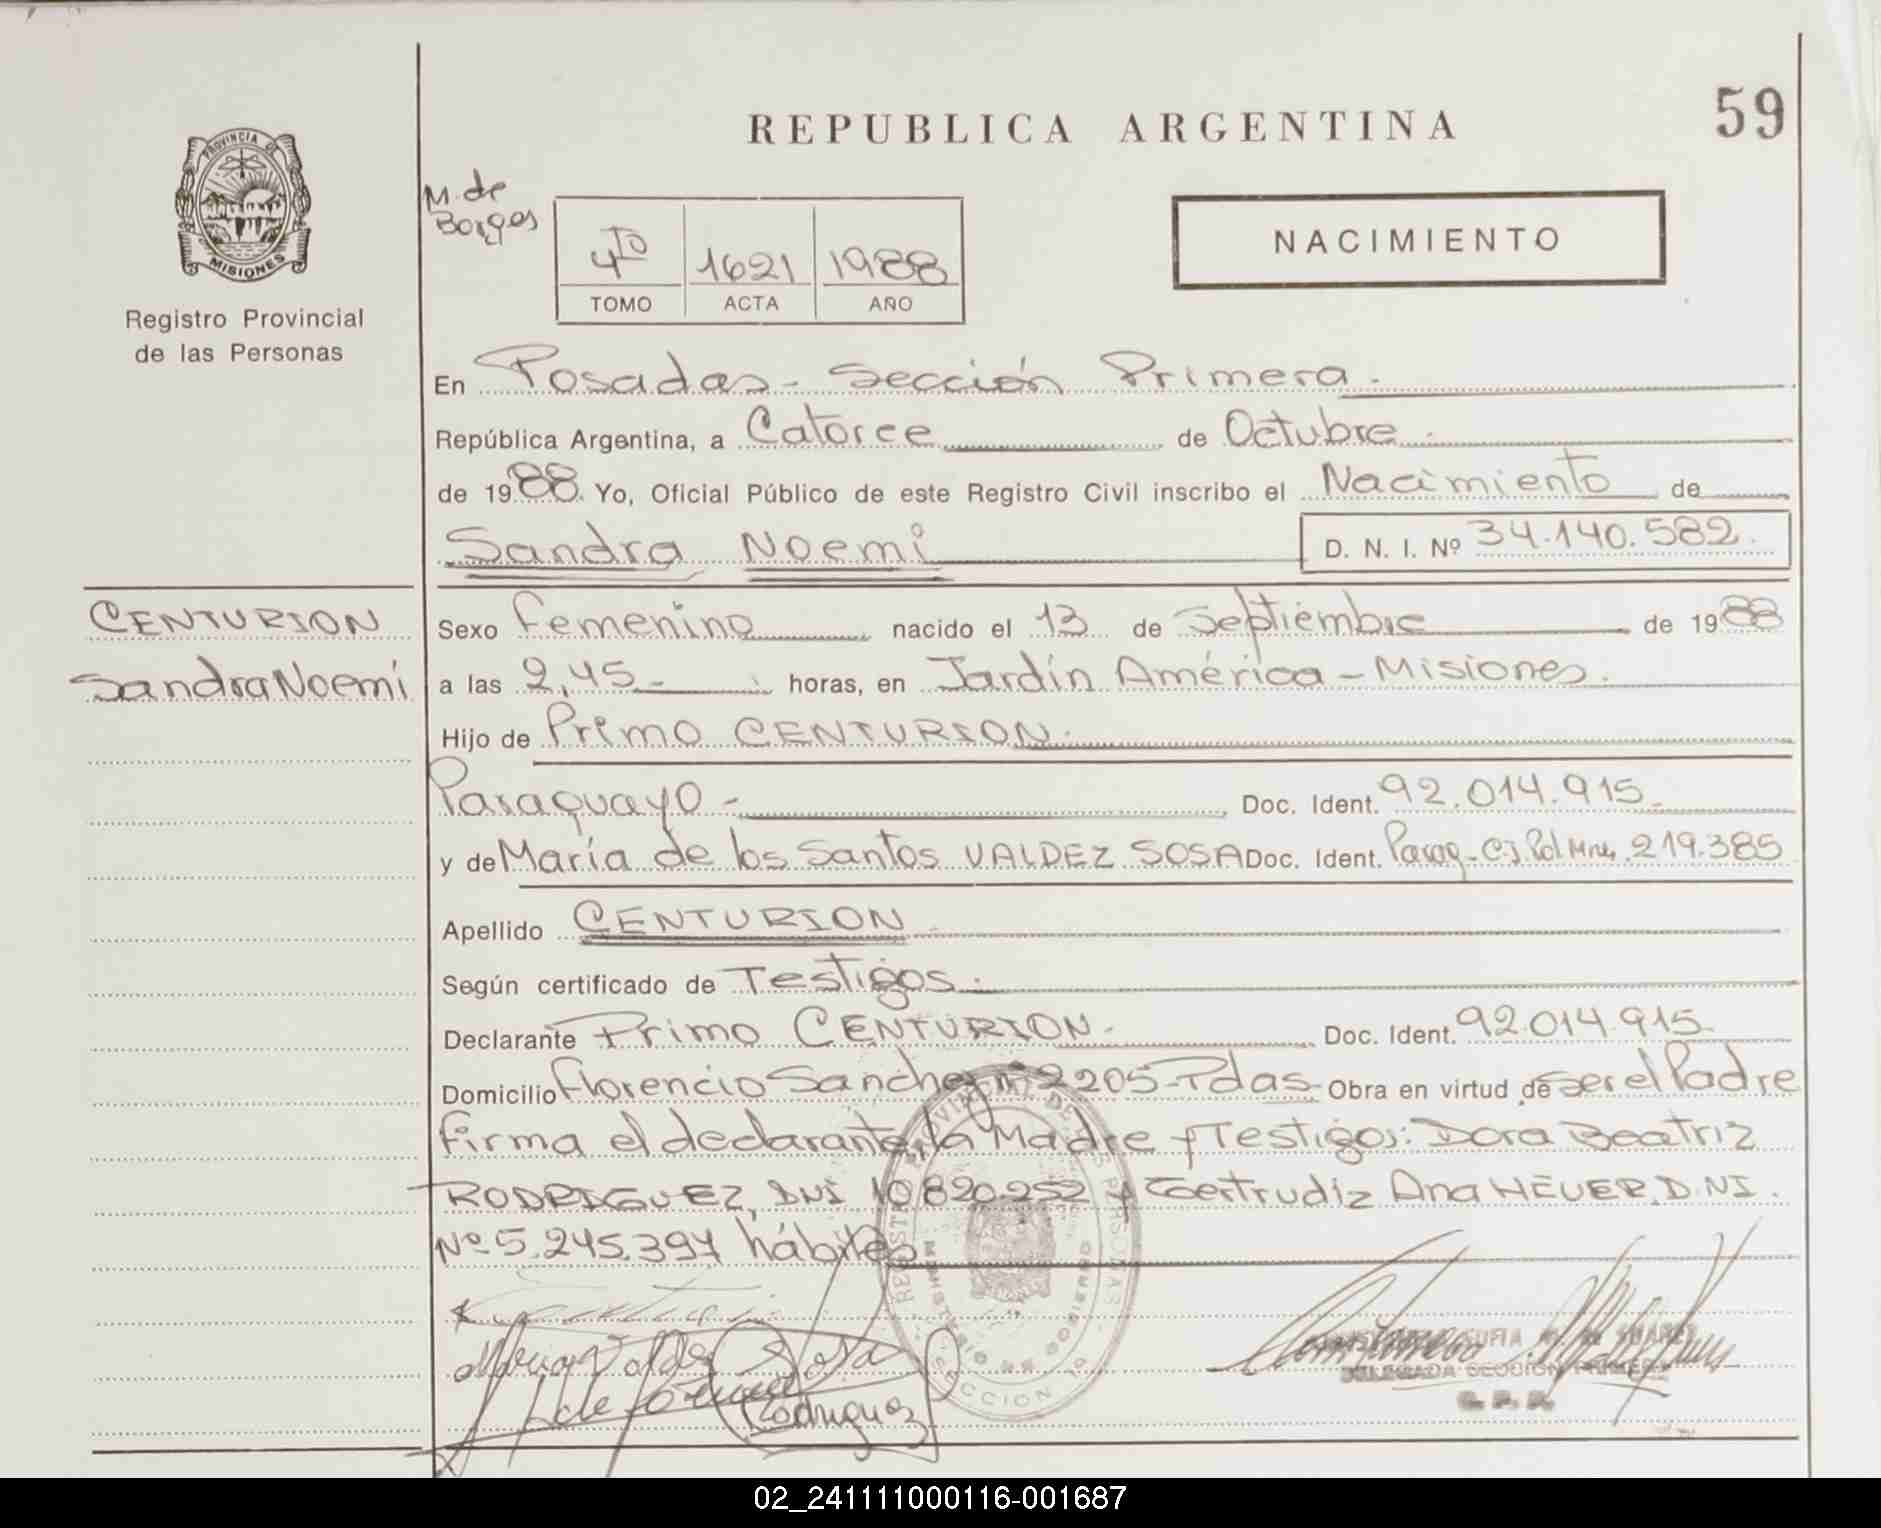 REPUBLICA ARGENTINA
59
PROVINCIA DE
MISIONES
Registro Provincial
de las Personas
M. de
Borges
4TO 1621 1988
TOMO ACTA AÑO
NACIMIENTO
En Posadas - Sección Primera.
República Argentina, a Catorce de Octubre.
de 1988. Yo, Oficial Público de este Registro Civil inscribo el Nacimiento de
Sandra Noemi D. N. I. Nº 34.140.582.
CENTURION
Sandra Noemi
Sexo Femenino nacido el 13 de Septiembre de 1988
a las 2,45- horas, en Jardín América - Misiones.
Hijo de Primo CENTURION.
Paraguayo - Doc. Ident. 92.014.915.
y de María de los Santos VALDEZ SOSA Doc. Ident. Parag - C.I. Pol Mnes. 219.385
Apellido CENTURION
Según certificado de Testigos.
Declarante Primo CENTURION. Doc. Ident. 92.014.915
Domicilio Florencio Sanchez nº 2205-Pdas- Obra en virtud de ser el Padre
firma el declarante, la Madre y Testigos: Dora Beatriz
RODRIGUEZ, DNI 10.820.252 y Gertrudiz Ana HEUER, D.NI.
Nº 5.245.397 hábiles
REGISTRO PROVINCIAL DE LAS PERSONAS
SECCION 1ª
Maria Valdez Sosa
Rodriguez
DELEGADA SECCION PRIMERA
02_241111000116-001687